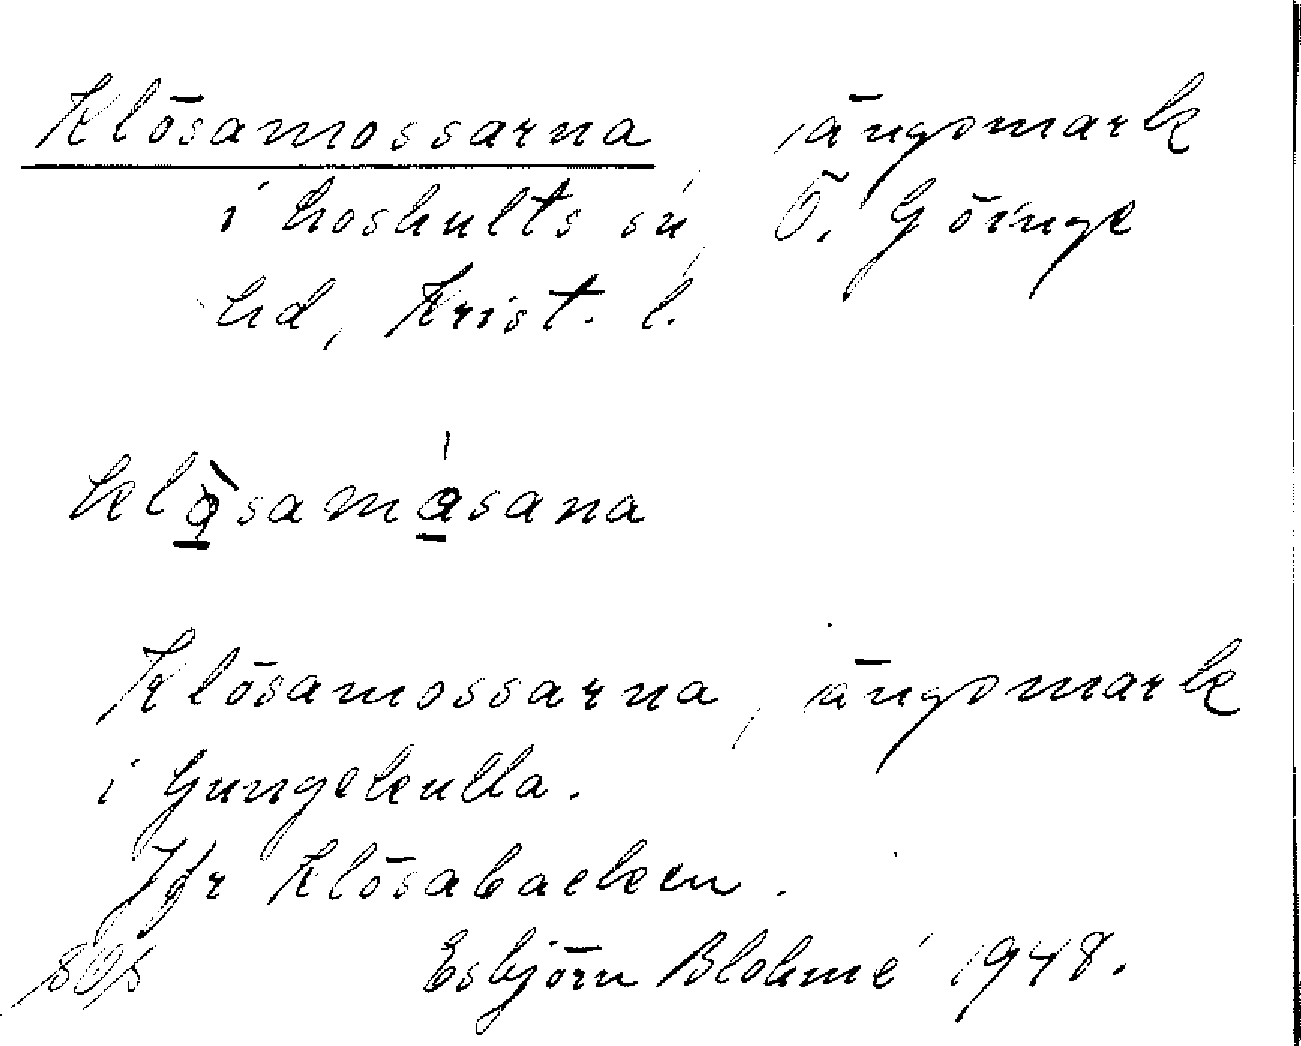 Klösamossarna ängsmark
i Loshults sn, Ö. Göinge
hd, Krist. l.
Klösamossarna, ängsmark
i Gungekulla.
Jfr Klösabacken.
Esbjörn Blohmé 1948.